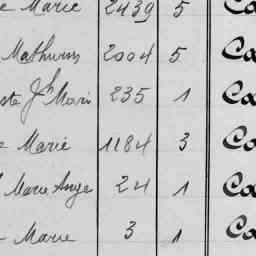 Marie 2439 5 Ca
Mathurin 2004 5 Ca
Jh Mari 235 1 Ca
Marie 1184 3 Ca
Marie Ange 24 1 Ca
Marie 3 1 Ca